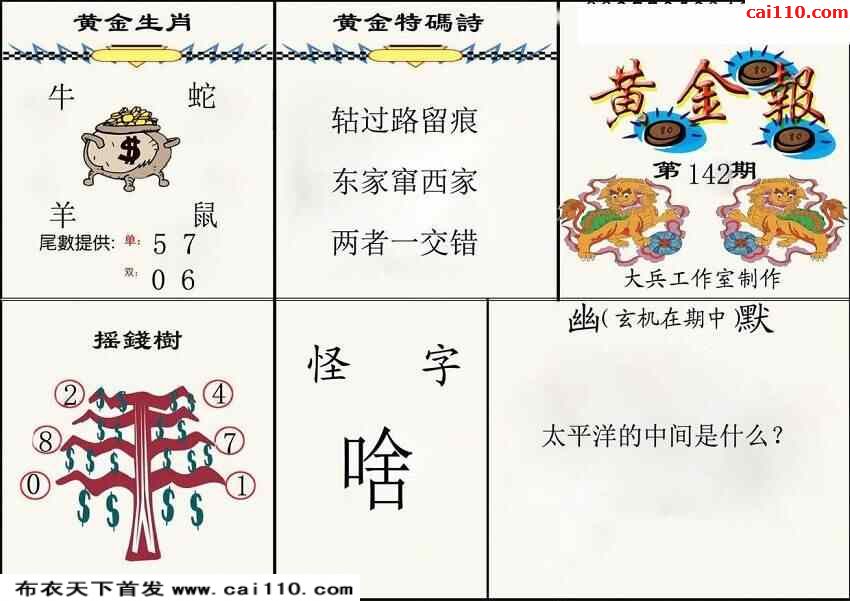 cai110.com
黄金生肖
牛 蛇
$
羊 鼠
尾數提供: 单: 5 7
双: 0 6
黄金特碼詩
轱过路留痕
东家窜西家
两者一交错
黄金報
第142期
大兵工作室制作
摇錢樹
2 4
8 7
0 1
怪 字
啥
幽(玄机在期中)默
太平洋的中间是什么?
布衣天下首发 www.cai110.com